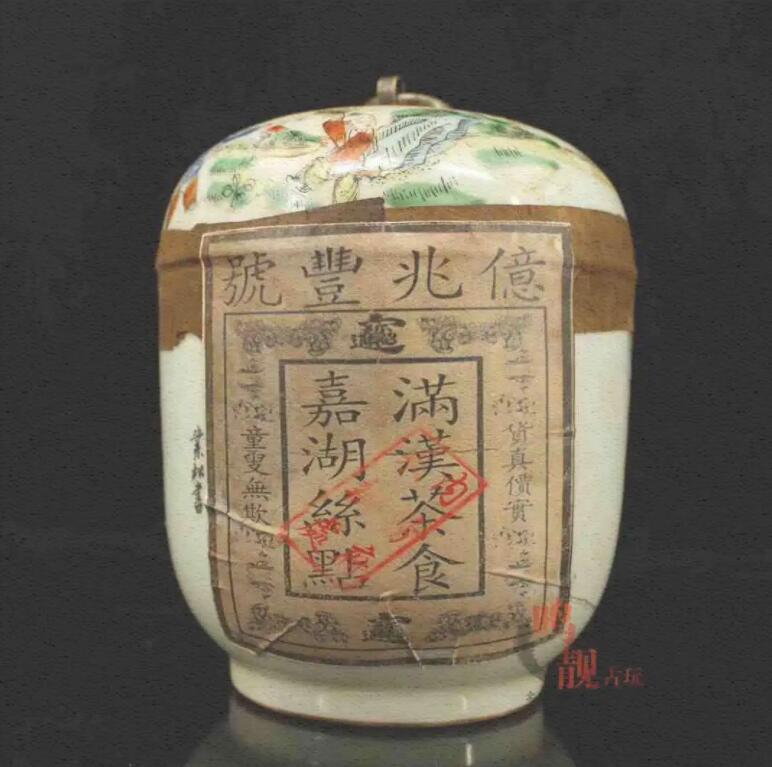 億兆豐號
滿漢茶食
嘉湖絲點
貨真價實
童叟無欺
靓
占玩